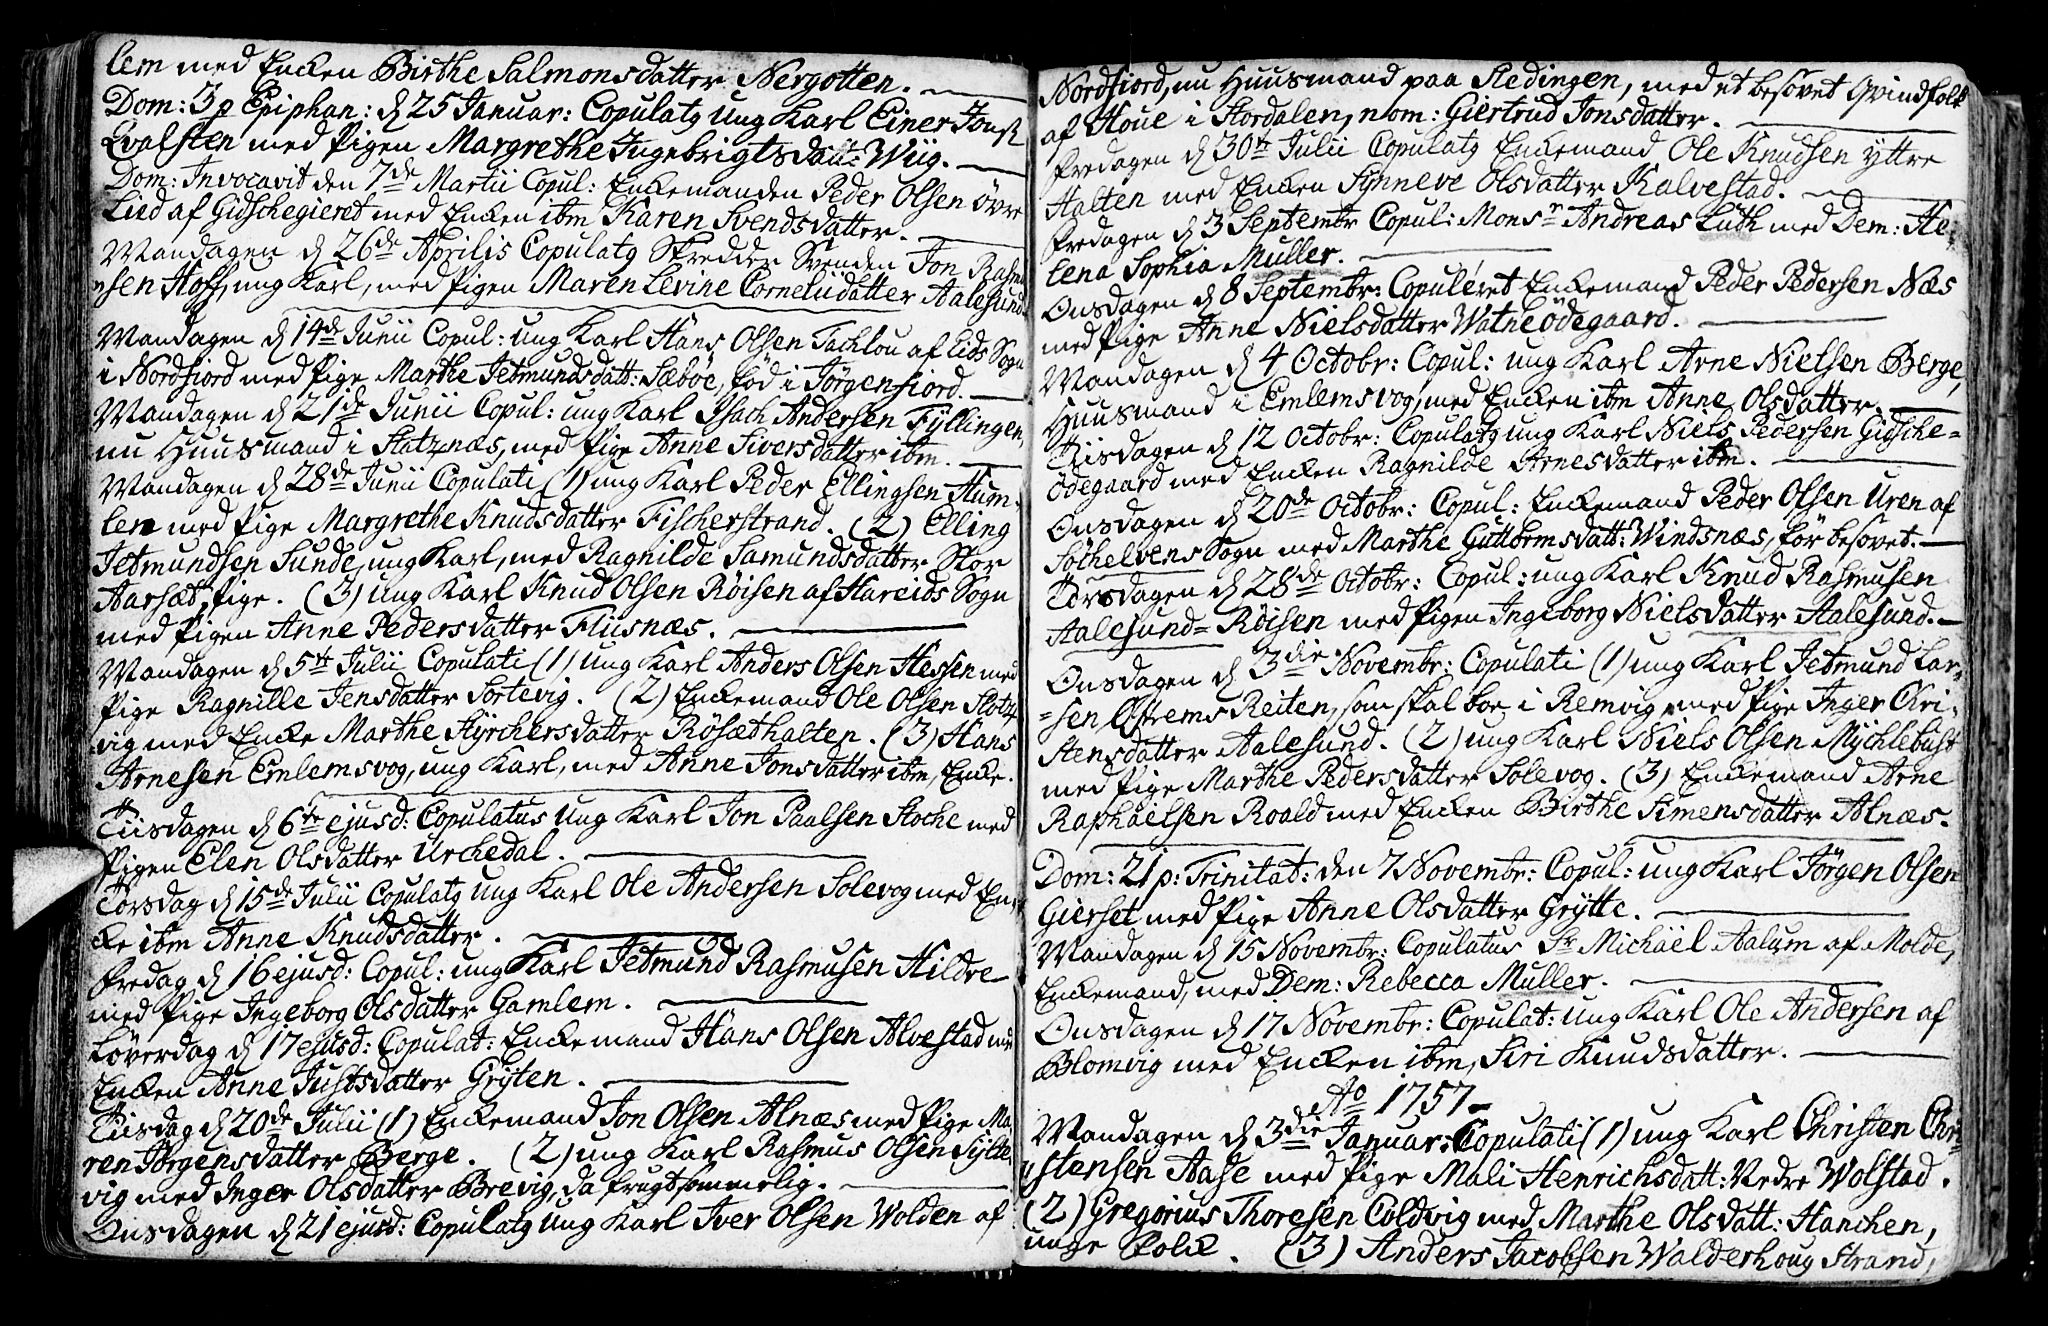 lem med Encken Birthe Salmonsdatter Nergotten.
Dom: 3 p Epiphan: d 25 Januar: Copulatg ung Karl Einer Jonss:
Qvalsten med Pigen Margrethe Ingebrigtsdatt: Wiig.
Dom: Invocavit den 7de Martii Copul: Enckemanden Peder Olsen øvre
Lied af Gidschegieret med Encken ibm Karen Svendsdatter.
Mandagen d 26de Aprilis Copulatg Skredder Svenden Jon Rasmu
-sen Hoff, ung Karl, med Pigen Maren Levine Corneliidatter Aalesund.
Mandagen d 14de Junii Copul: ung Karl Hans Olsen Tachlou af Eids Sogn
i Nordfiord med Pige Marthe Jetmundsdatt: Sæbøe, fød i Jørgenfiord.
Mandagen d 21de Junii Copul: ung Karl Isach Andersen Fÿllingen,
nu Huusmand i Flatznæs, med Pige Anne Siversdatter ibm.
Mandagen d 28de Junii Copulati (1) ung Karl Peder Ellingsen Hum-
len med Pige Margrethe Knudsdatter Fischerstrand. (2) Elling
Jetmundsen Sunde, ung Karl, med Ragnilde Samundsdatter Stor
Aarsæt, Pige. (3) ung Karl Knud Olsen Røisen af Hareids Sogn
med Pigen Anne Pedersdatter Fliisnæs.
Mandagen d 5te Julii Copulati (1) ung Karl Anders Olsen Hessen med
Pige Ragnille Jensdatter Sortevig. (2) Enckemand Ole Olsen Flotz
vig med Encke Marthe Hÿrchersdatter Røsæthalten. (3) Hans
Arnesen Emlemsvog, ung Karl, med Anne Jonsdatter ibm, Encke.
Tiisdagen d 6te ejusd: Copulatus ung Karl Jon Paalsen Stoche med
Pigen Elen Olsdatter Urchedal.
Torsdag d 15de Julii Copulatg ung Karl Ole Andersen Solevog med En-
cke ibm Anne Knudsdatter.
Fredag d 16 ejusd: Copul: ung Karl Jetmund Rasmusen Hildre
med Pige Ingeborg Olsdatter Gamlem.
Løverdag d 17 ejusd: Copulat: Enckemand Hans Olsen Alvestad med
Encken Anne Justsdatter Grÿten.
Tiisdag d 20de Julii (1) Enckemand Jon Olsen Alnæs med Pige Ma-
ren Jørgensdatter Berge. (2) ung Karl Rasmus Olsen Sÿlte
vig med Inger Olsdatter Brevig, da frugtsommelig.
Onsdagen d 21 ejusd: Copulatg ung Karl Iver Olsen Wolden af
Nordfiord, nu Huusmand paa Sledingen, med et besovet Qvindfolk
af Houe i Stordalen, nom: Giertrud Jonsdatter.
Fredagen d 30te Julii Copulatg Enckemand Ole Knudsen ÿttre
Halten med Encken Sÿnneve Olsdatter Kalvestad.
Fredagen d 3 Septembr Copul: Monsr Andreas Luth med Dem: He-
lena Sophia Müller.
Onsdagen d 8 Septembr: Copuléret Enckemand Peder Pedersen Næs
med Pige Anne Nielsdatter Watneødegaard.
Mandagen d 4 Octobr: Copul: ung Karl Arne Nielsen Berge,
Huusmand i Emlemsvog, med Encken ibm Anne Olsdatter.
Tiisdagen d 12 Octobr: Copulatg ung Karl Niels Pedersen Gidsche=
Ødegaard med Encken Ragnilde Arnesdatter ibm.
Onsdagen d 20de Octobr: Copul: Enckemand Peder Olsen Uren af
Søchelvens Sogn med Marthe Guttormsdatt: Windsnæs, før besovet.
Torsdagen d 28de Octobr: Copul: ung Karl Knud Rasmusen
Aalesund=Røisen med Pigen Ingeborg Nielsdatter Aalesund.
Onsdagen d 3die Novembr: Copulati (1) ung Karl Jetmund Lar-
=sen Østrems Reiten, som skal boe i Remvig, med Pige Inger Chri-
stensdatter Aalesund. (2) ung Karl Niels Olsen Mÿchlebust
med Pige Marthe Pedersdatter Solevog. (3) Enckemand Arne
Raphaelsen Roald med Encken Birthe Simensdatter Alnæs.
Dom: 21 p: Trinitat: den 7 Novembr: Copul: ung Karl Jörgen Olsen
Gierset med Pige Anne Olsdatter Grÿtte.
Mandagen d 15 Novembr: Copulatus Sr Michäel Aalum af Molde,
Enckemand, med Dem: Rebecca Müller.
Onsdagen d 17 Novembr: Copulat: ung Karl Ole Andersen af
Blomvig med Encken ibm, Siri Knudsdatter.
Ao 1757
Mandagen d 3die Januar: Copulati (1) ung Karl Christen Chri-
stensen Aase med Pige Mali Henrichsdatt: Nedre Wolstad.
(2) Gregorius Thoresen Coldvig med Marthe Olsdatt: Hanchen,
unge Folk. (3) Anders Jacobsen Walderhoug Strand,